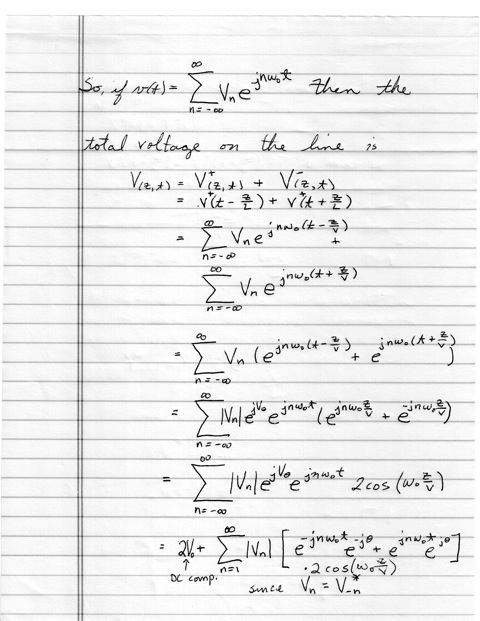 So, if v(t) = ∑_{n=-∞}^{∞} V_n e^{jnω₀t} then the
total voltage on the line is
V(z,t) = V⁺(z,t) + V⁻(z,t)
= v⁺(t - z/L) + v⁺(t + z/L)
= ∑_{n=-∞}^{∞} V_n e^{jnω₀(t - z/v)} +
∑_{n=-∞}^{∞} V_n e^{jnω₀(t + z/v)}
= ∑_{n=-∞}^{∞} V_n (e^{jnω₀(t - z/v)} + e^{jnω₀(t + z/v)})
= ∑_{n=-∞}^{∞} |V_n| e^{jVθ} e^{jnω₀t} (e^{jnω₀ z/v} + e^{-jnω₀ z/v})
= ∑_{n=-∞}^{∞} |V_n| e^{jVθ} e^{jnω₀t} 2cos(ω₀ z/v)
= 2V₀ + ∑_{n=1}^{∞} |V_n| [e^{-jnω₀t} e^{-jθ} + e^{jnω₀t} e^{jθ}]
↑ · 2cos(ω₀ z/v)
DC comp. since V_n = V_{-n}^*